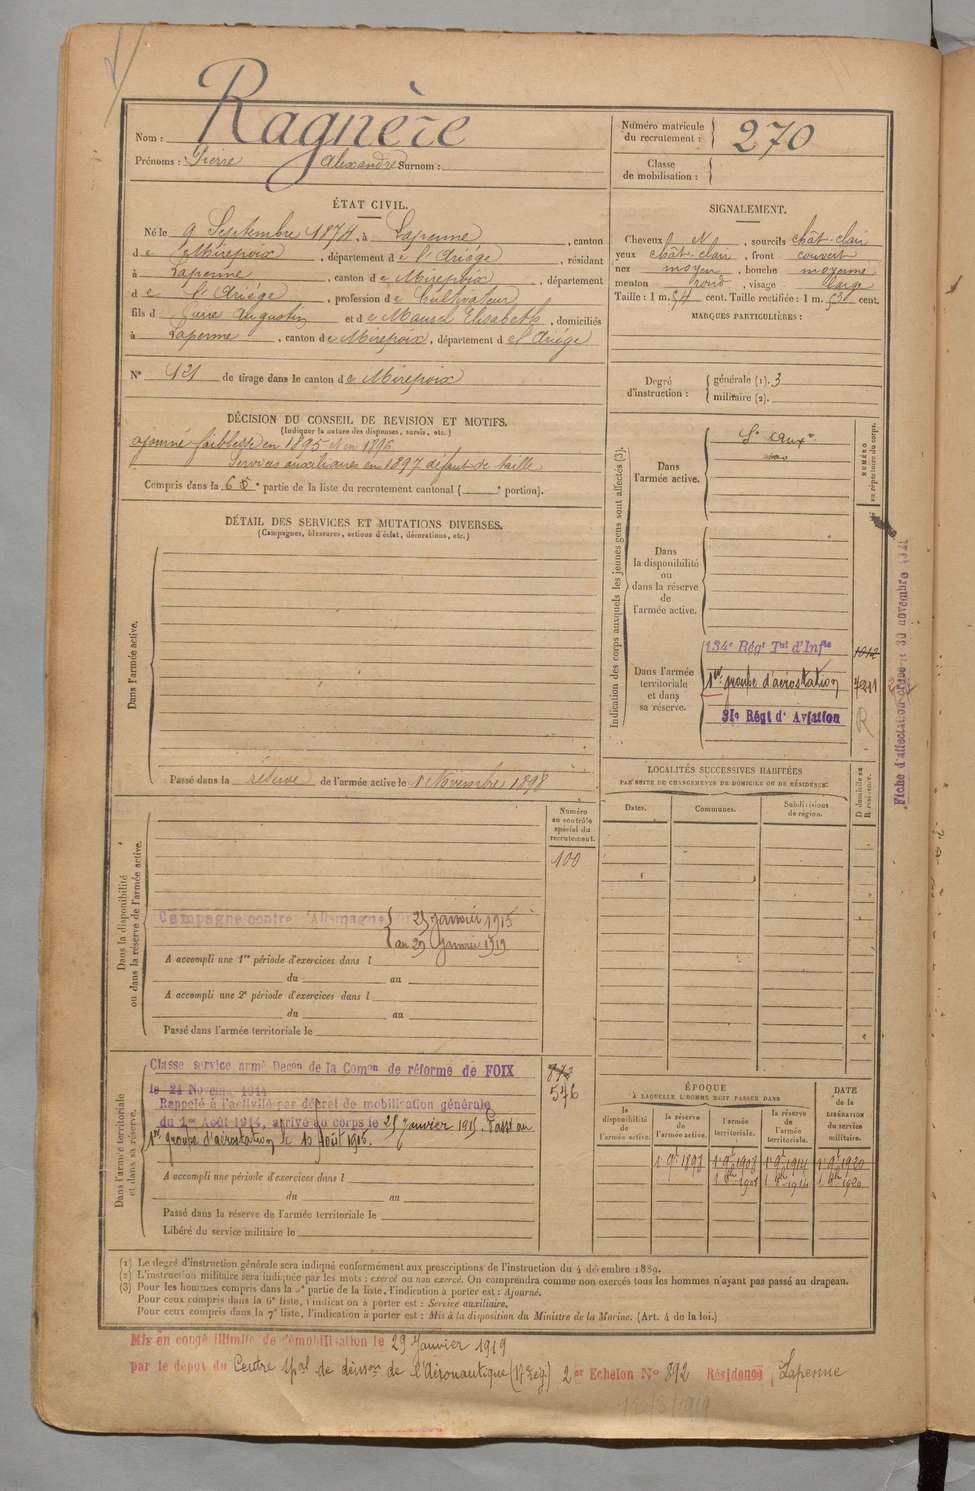 Nom : Ragnère
Prénoms : Pierre Alexandre Surnom :
Numéro matricule du recrutement : 270
Classe de mobilisation :
ÉTAT CIVIL.
Né le 9 Septembre 1874, à Lapenne, canton
de Mirepoix, département de l'Ariège, résidant
à Lapenne, canton de Mirepoix, département
de l'Ariège, profession de Cultivateur
fils de Pierre Augustin et de Maurel Elisabeth, domiciliés
à Lapenne, canton de Mirepoix, département de l'Ariège
N° 121 de tirage dans le canton de Mirepoix
SIGNALEMENT.
Cheveux et, sourcils chât-clair
yeux chât-clair, front couvert
nez moyen, bouche moyenne
menton rond, visage large
Taille : 1 m. 54 cent. Taille rectifiée : 1 m. 53 cent.
MARQUES PARTICULIÈRES :
Degré d'instruction : générale (1). 3
militaire (2).
DÉCISION DU CONSEIL DE REVISION ET MOTIFS.
(Indiquer la nature des dispenses, sursis, etc.)
ajourné faiblesse en 1895 et en 1896
Services auxiliaires en 1897 défaut de taille
Compris dans la 6e partie de la liste du recrutement cantonal ( e portion).
DÉTAIL DES SERVICES ET MUTATIONS DIVERSES.
(Campagnes, blessures, actions d'éclat, décorations, etc.)
Dans l'armée active.
Passé dans la réserve de l'armée active le 1 Novembre 1898
Indication des corps auxquels les jeunes gens sont affectés (3).
NUMÉRO au répertoire du corps.
Dans l'armée active.
Sce auxre
Dans la disponibilité ou dans la réserve de l'armée active.
Dans l'armée territoriale et dans sa réserve.
134e Régt Tal d'Infie 1012
1er groupe d'aérostation 7211
31e Régt d'Aviation R
Fiche d'affectation
30 novembre
LOCALITÉS SUCCESSIVES HABITÉES
PAR SUITE DE CHANGEMENTS DE DOMICILE OU DE RÉSIDENCE.
Dates. Communes. Subdivisions de région. D domicile ou R résidence.
Dans la disponibilité ou dans la réserve de l'armée active.
Numéro au contrôle spécial du recrutement.
100
Campagne contre l'Allemagne du 25 janvier 1915
au 29 Janvier 1919
A accompli une 1re période d'exercices dans l
du au
A accompli une 2e période d'exercices dans l
du au
Passé dans l'armée territoriale le
Dans l'armée territoriale et dans sa réserve.
Classé service armé Décon de la Comon de réforme de FOIX
le 24 Novem 1914
Rappelé à l'activité par décret de mobilisation générale
du 1er Août 1914, arrivé au corps le 25 Janvier 1915. Passé au
1er groupe d'aérostation le 10 Août 1916.
576
A accompli une période d'exercices dans l
du au
Passé dans la réserve de l'armée territoriale le
Libéré du service militaire le
ÉPOQUE
À LAQUELLE L'HOMME DOIT PASSER DANS
la disponibilité de l'armée active. la réserve de l'armée active. l'armée territoriale. la réserve de l'armée territoriale. DATE de la LIBÉRATION du service militaire.
1 9e 1898 1 9e 1908 1 9e 1914 1 9e 1920
1 8bre 1908 1 8bre 1914 1 8bre 1920
(1) Le degré d'instruction générale sera indiqué conformément aux prescriptions de l'instruction du 4 décembre 1889.
(2) L'instruction militaire sera indiquée par les mots : exercé ou non exercé. On comprendra comme non exercés tous les hommes n'ayant pas passé au drapeau.
(3) Pour les hommes compris dans la 5e partie de la liste, l'indication à porter est : Ajourné.
Pour ceux compris dans la 6e liste, l'indication à porter est : Service auxiliaire.
Pour ceux compris dans la 7e liste, l'indication à porter est : Mis à la disposition du Ministre de la Marine. (Art. 4 de la loi.)
Mis en congé illimité de démobilisation le 29 Janvier 1919
par le dépôt du Centre spal de démon de l'Aéronautique (17e rég.) 2er Echelon No 892 Résidence, Lapenne
12/3/1919